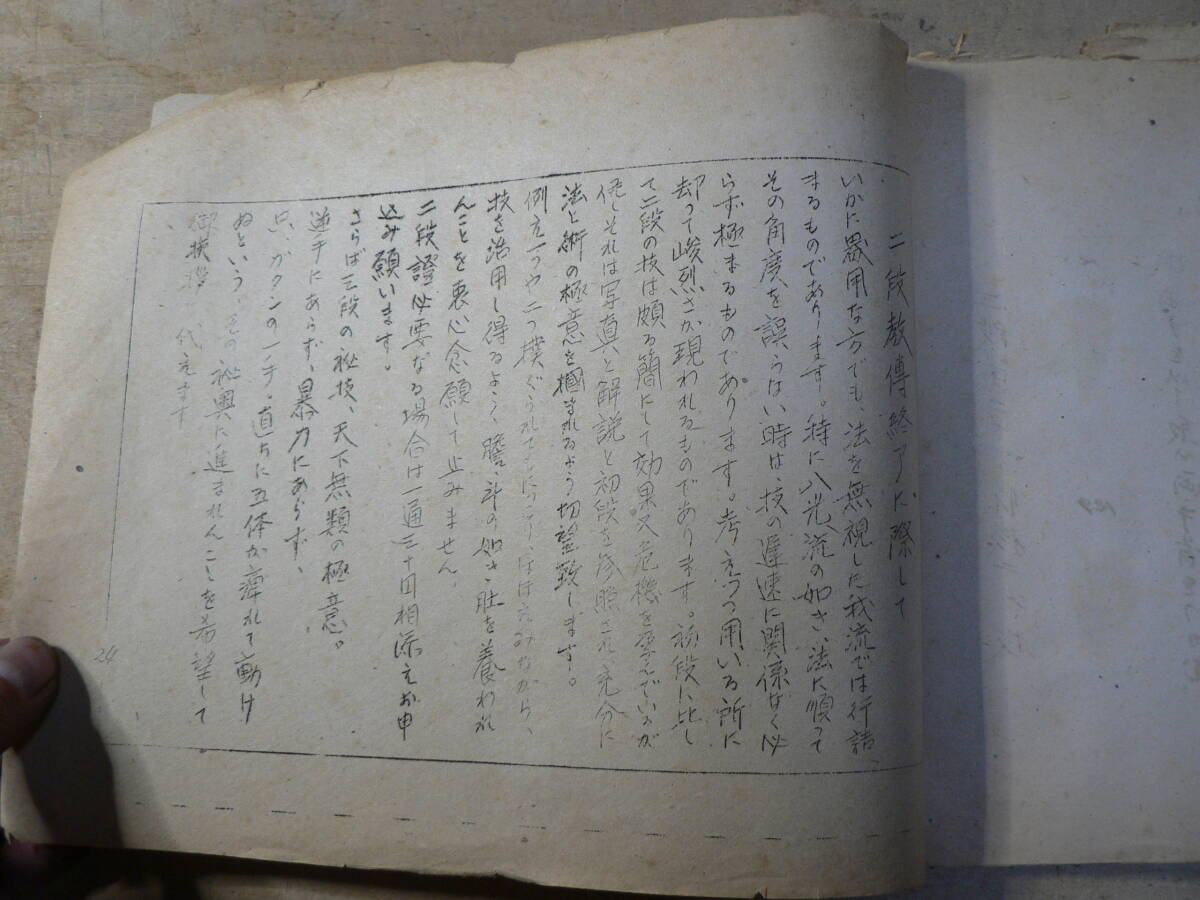 二段教傳終了に際して
いかに器用な方でも、法を無視した我流では行詰
まるものであります。特に八光流の如き、法に順って
その角度を誤らない時は、技の遅速に関係なく必
らず極まるものであります。考えつつ用いる所に
却って峻烈さが現われるものであります。初段に比し
て二段の技は頗る簡にして効果又危機を孕んでいるが
併しそれは写真と解説と初段を参照され充分に
法と術の極意を摑まれるよう切望致します。
例え一つや二つ撲ぐられてもにっこりほほえみながら、
技を活用し得るよう、膽、斗の如き、肚を養われ
んことを衷心念願して止みません。
二段證必要なる場合は一通三十円相添えお申
込み願います。
さらば三段の秘技、天下無類の極意。
逆手にあらず、暴力にあらず、
只、ガクンの一手。直ちに五体が痺れて動け
ぬという その秘奥に進まれんことを希望して
御挨拶 代えます
24